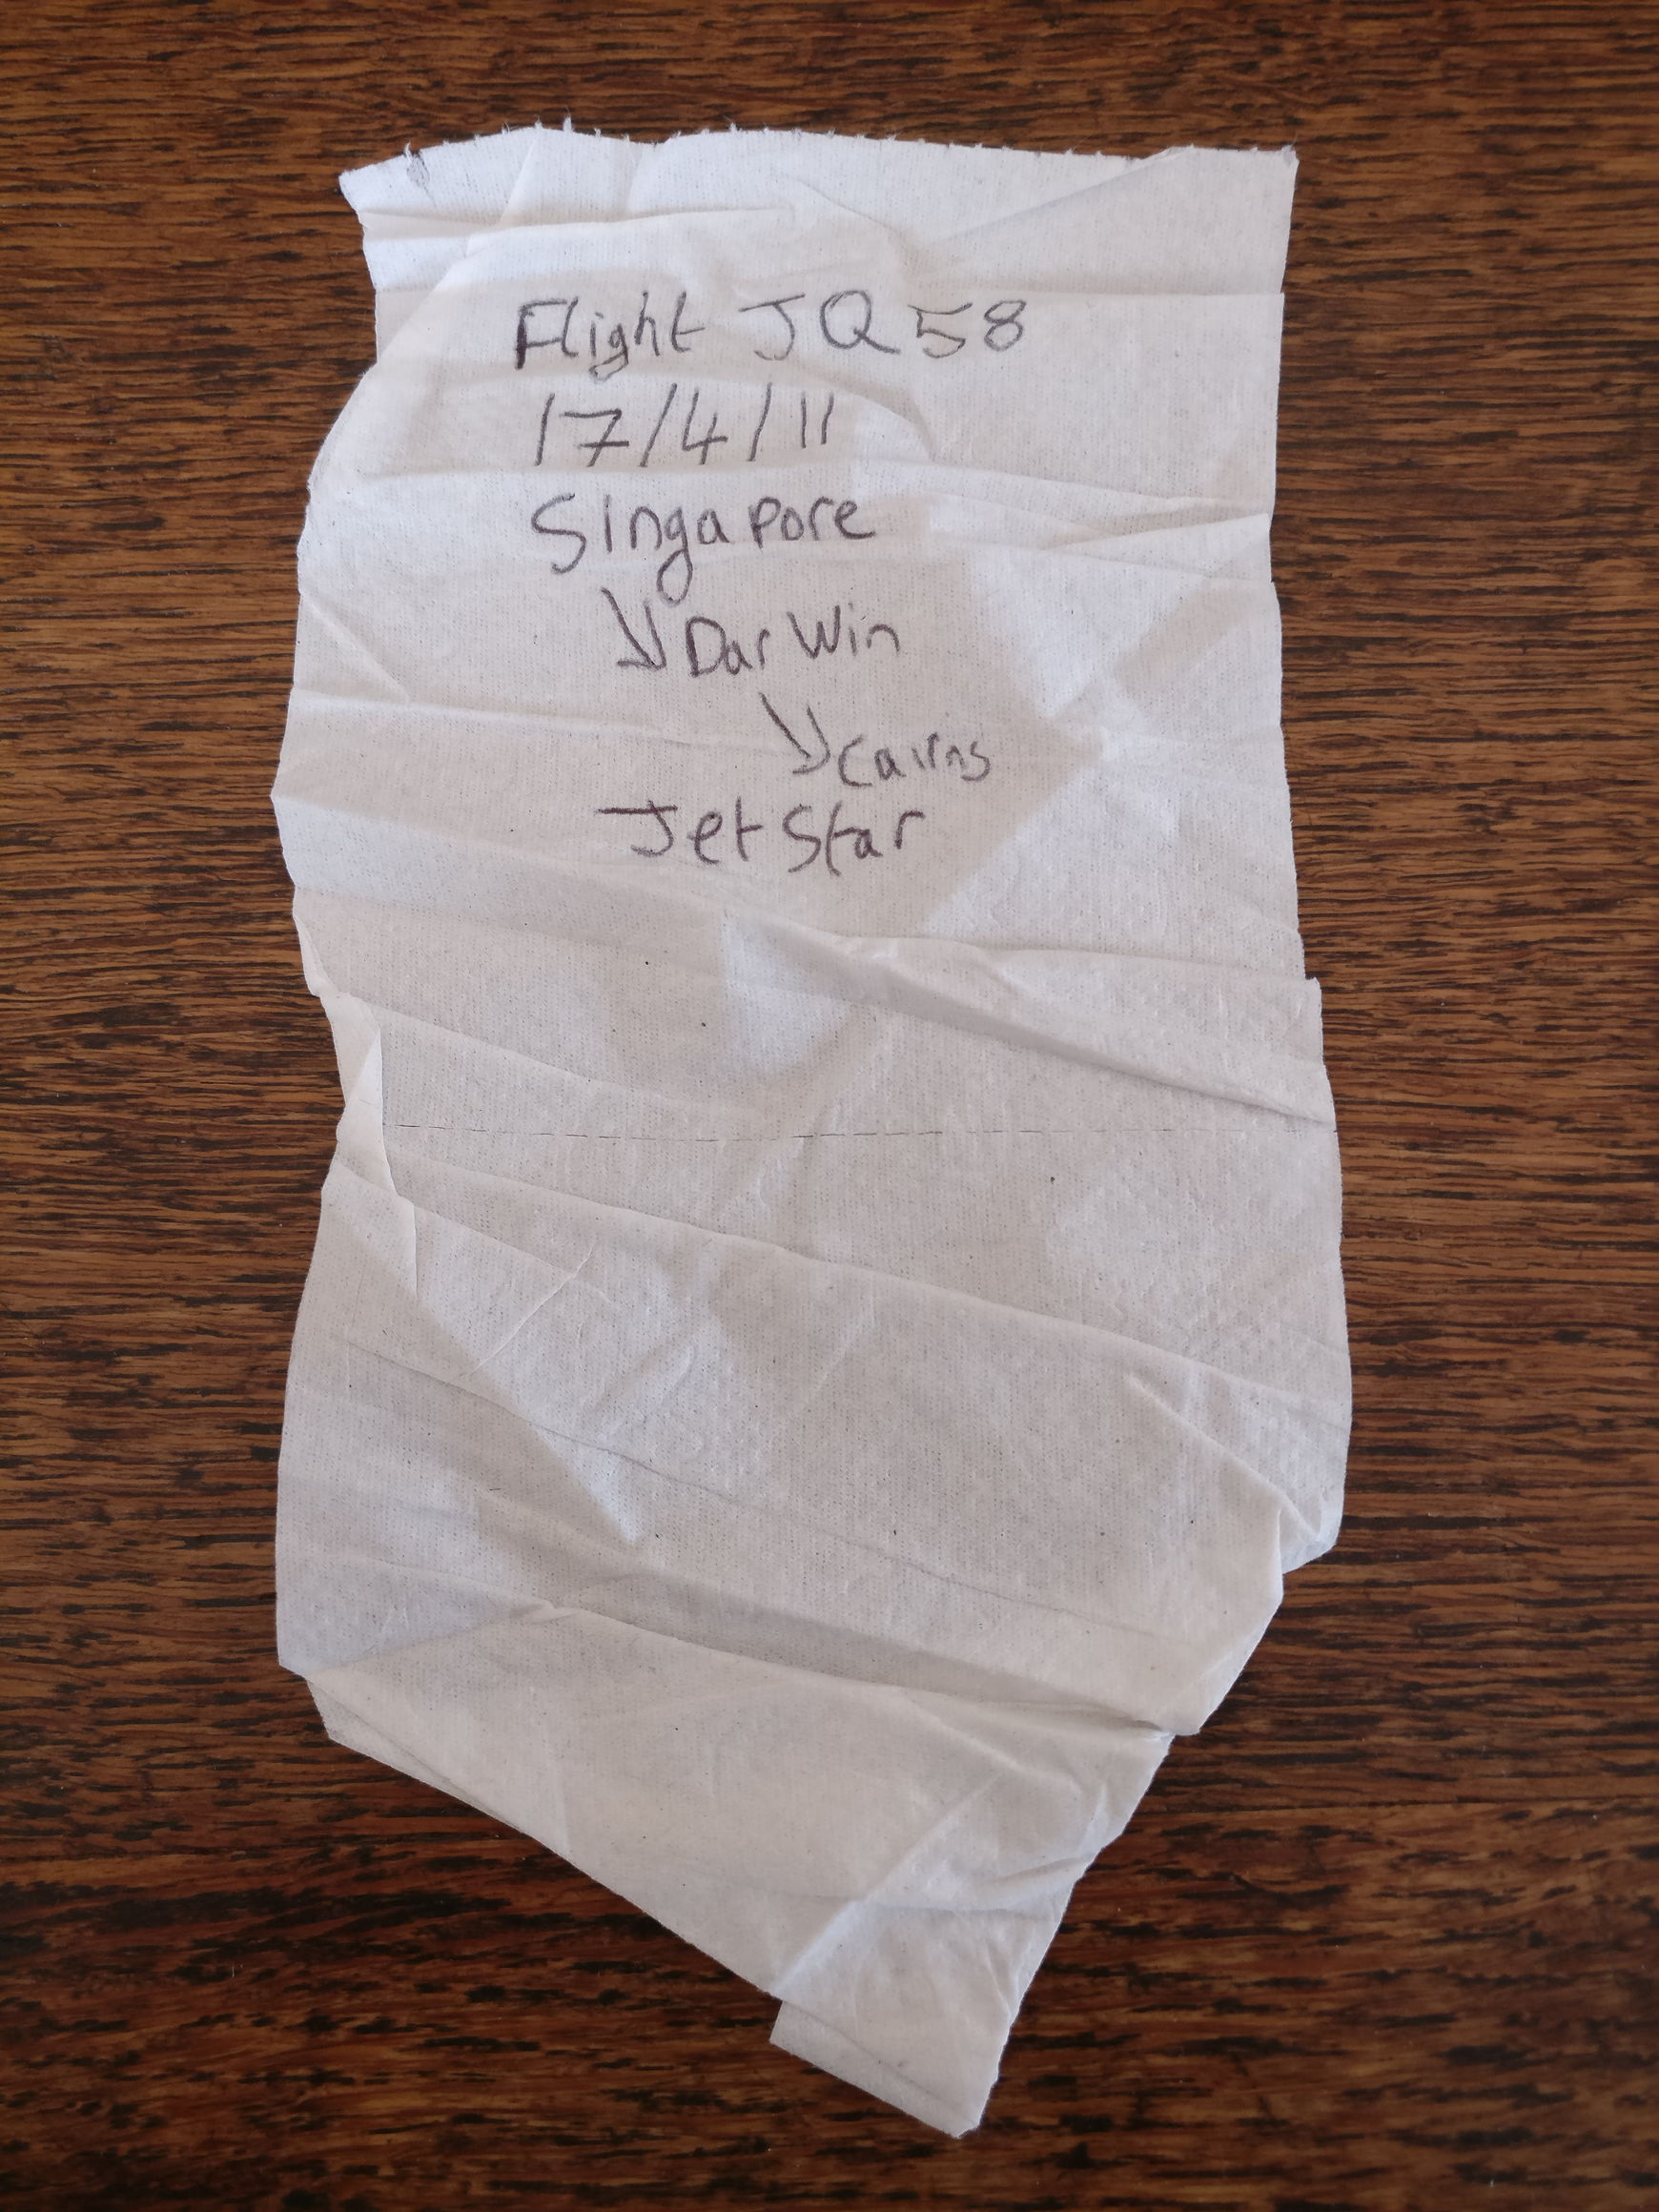 Flight JQ58
17/4/11
Singapore
↘Darwin
↘Cairns
JetStar